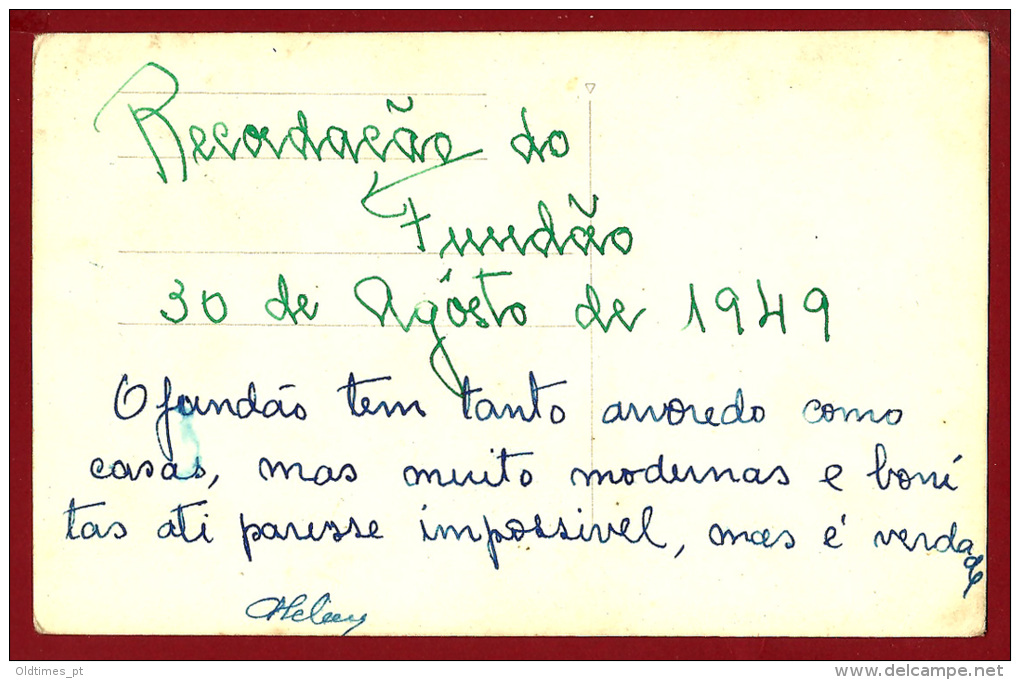 Recordação do
Fundão
30 de Agósto de 1949
O fundão tem tanto arvoredo como
casas, mas muito modernas e boni
tas ati paresse impossivel, mas é verdade
Oldtimes_pt
www.delcampe.net